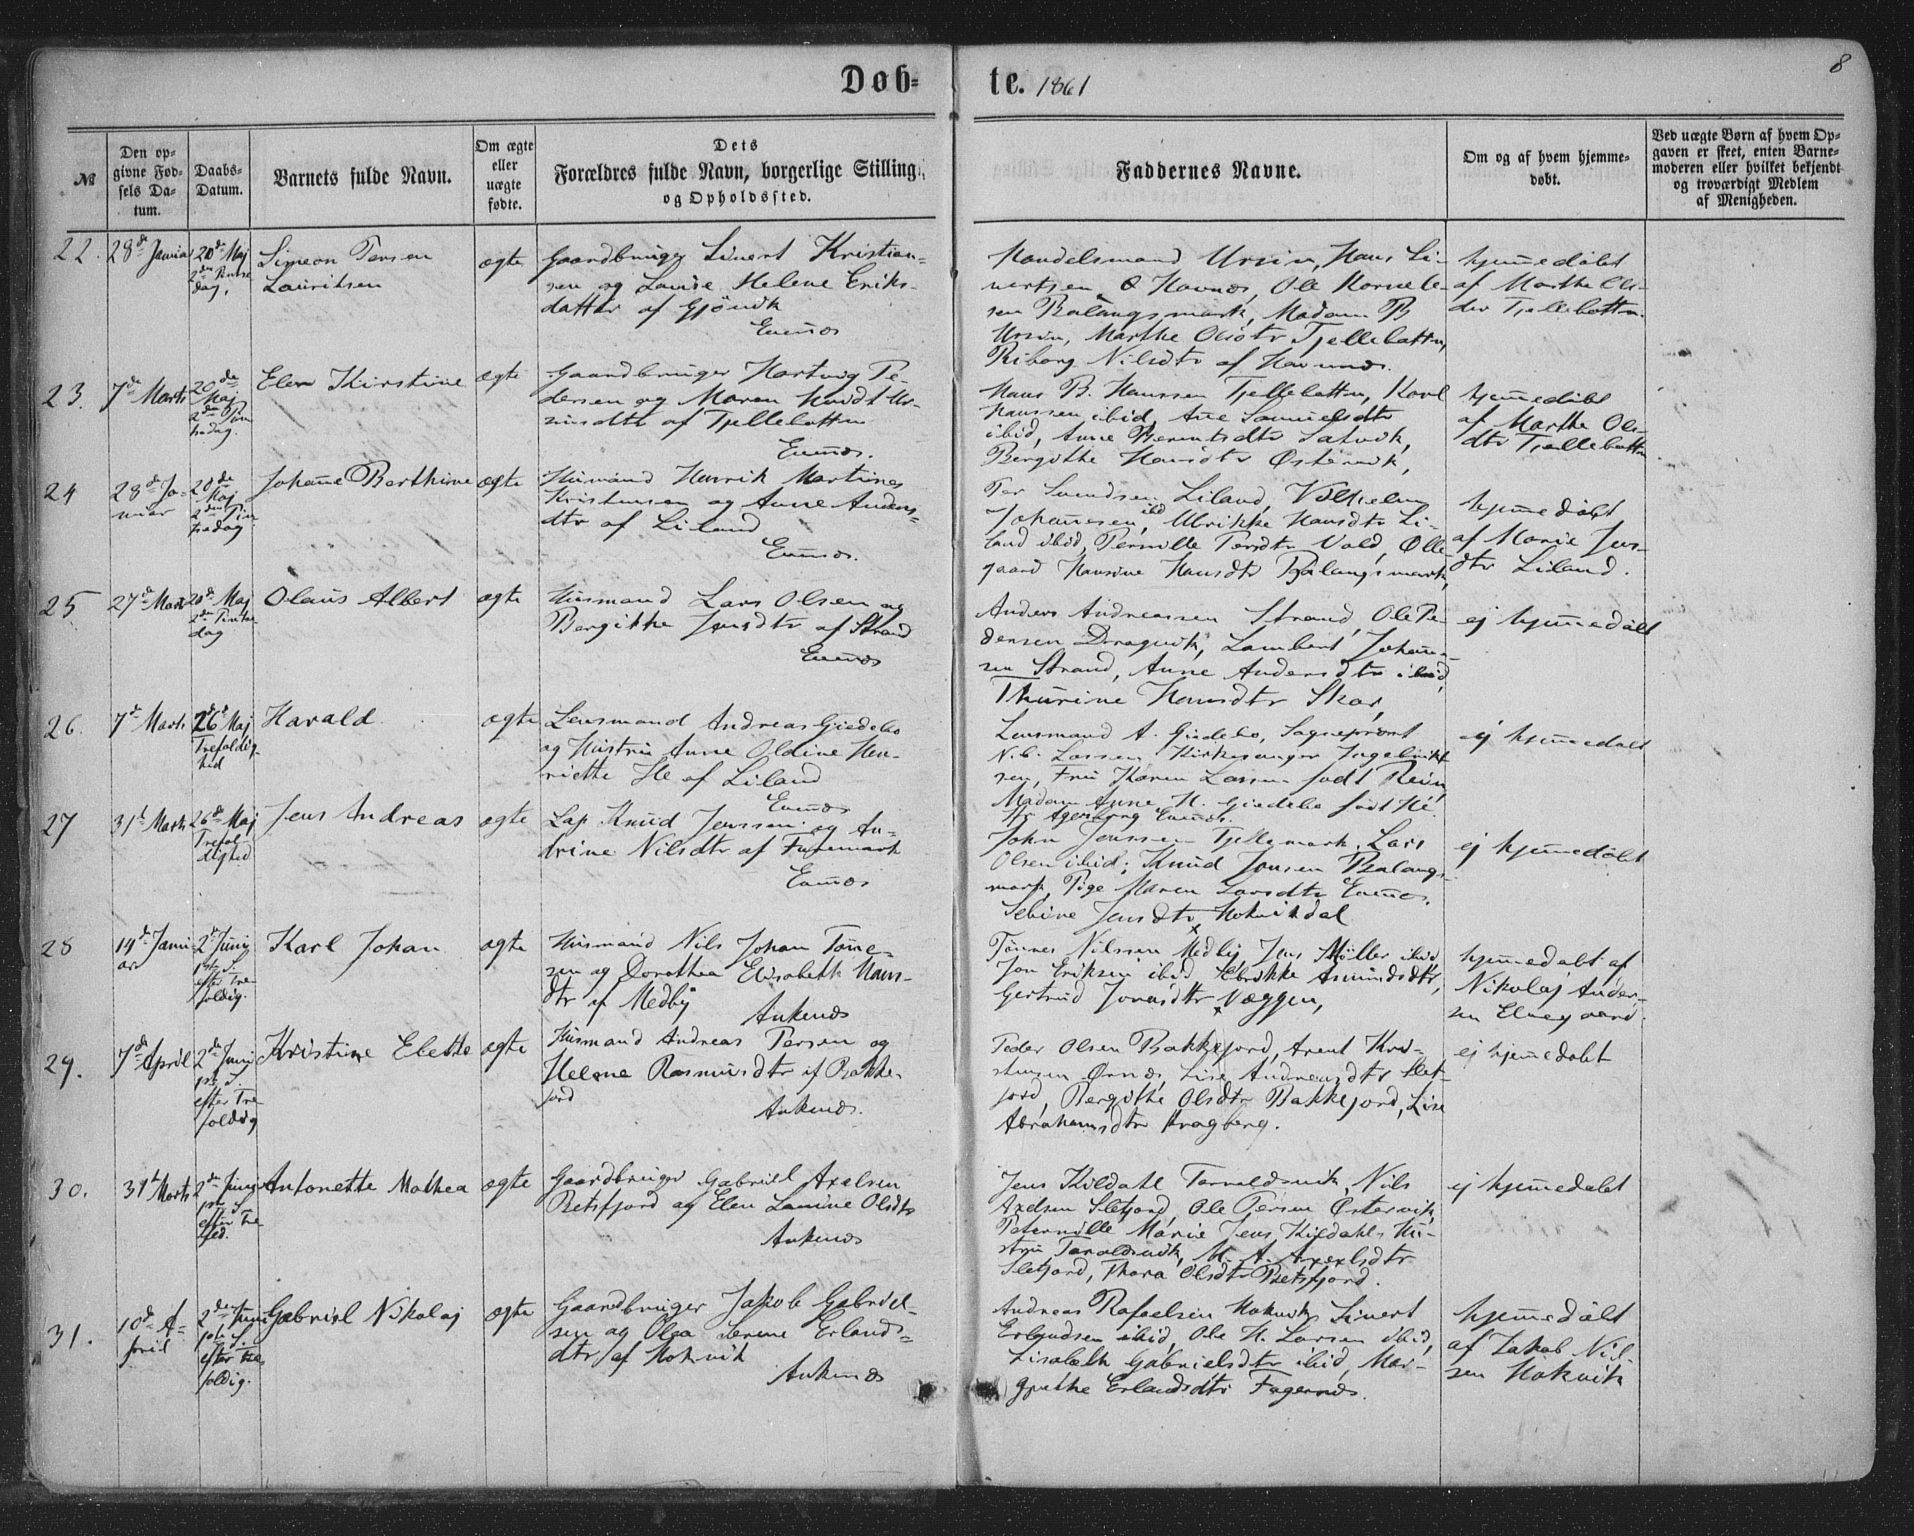 Døb- te. 1861
8
№
Den op-
givne Fød-
sels Da-
tum.
Daabs-
Datum.
Barnets fulde Navn.
Om ægte
eller
uægte
fødte.
Dets
Forældres fulde Navn, borgerlige Stilling,
og Opholdssted.
Faddernes Navne.
Om og af hvem hjemme-
døbt.
Ved uægte Børn af hvem Op-
gaven er skeet, enten Barne-
moderen eller hvilket bekjendt
og troværdigt Medlem
af Menigheden.
22.
28de Januar
20de Maj
2den Pintse
dag,
Simeon Persen
Lauritsen
ægte
Gaardbruger Sivert Kristian-
sen og Louise Helene Eriks-
datter af Gjøvik
Evenæs
Handelsmand Ursin, Hans Si-
vertsen, Ole Kornele-
sen Balangsmark, Madam B
Ursin, Marthe Olsdtr Tjellebotten,
Riborg Nilsdtr af
hjemmedøbt
af Marthe Ols-
dtr Tjellebotten.
23.
7de Marts
20de
Maj
2den Pin
tsedag.
Elen Kirstine
ægte
Gaardbruger Hartvig Pe-
dersen og Maren
af Tjellebotten
Evenæs.
Hans B. Hanssen Tjellebotten, Karl
Hanssen ibid, Ane Samuelsdtr
ibid, Anne Berentsdtr
Bergithe Hansdtr Østervik,
hjemmedøbt
af Marthe Ols-
dtr Tjellebotten
24
28de Ja-
nuar
20de
Maj
2den Pin
tsedag
Johanne Berthine
ægte
Husmand Henrik Martines
Kristensen og Anne Anders-
dtr af Liland
Evenæs.
Per Liland, Vilhelm
Johannesen, ibid Ulrikke Hansdtr Li-
land ibid, Pernille Persdtr Vold, Olle-
gaard Hansine Hansdtr Balangsmark,
hjemmedøbt
af Marie Jens-
dtr Liland.
25
27de Marts
20de Maj
2den Pintse
dag
Olaus Albert
ægte
Husmand Lars Olsen og
Bergitte Jensdtr af Strand
Evenæs
Anders Andreassen Strand, Ole Pe-
dersen Dragvik, Lambert Johan-
sen Strand, Anne Andersdtr ibid,
Thurine Hansdtr Skar,
ej hjemmedøbt
26.
7de Marts
26de Maj
Trefoldig-
hed
Harald
ægte
Lensmand Andreas Giædebo
og Hustru Anne Oldine Hen-
riette Ile af Liland
Evenæs
Lensmand A. Giædebo, Sogneprest
N. C. Lassen, Kirkesanger Ingebrikt-
sen, Fru Karen Lassen født Rein,
Madam Anne H. Giædebo født
Evenæs.
ej hjemmedøbt
27
31te Marts
26de Maj
Trefol-
dighed
Jens Andreas
ægte
Lap Knud Jonssen og An-
drine Nilsdtr af
Evenæs
John Jonssen Tjellemark, Lars
Olsen ibid; Knud Jonsen Balangs-
mark, Pige Maren Larsdtr Evenæs,
Sebine Jensdtr
ej hjemmedøbt
28
14de Janu-
ar
2de Juni
1ste S.
efter Tre-
foldig.
Karl Johan
ægte
Husmand Nils Johan Tønne-
sen og Dorothea Elisabeth Hans-
dtr af Medby
Ankenæs
Tønnes Nilssen Medby, Jens Møller ibid,
Jon Eriksen ibid, Asmundsdtr,
Gertrud Jonasdtr Væggen,
hjemmedøbt af
Nikolaj Ander-
sen Elvegaard.
29.
7de April
2de Juni
1ste S.
efter Tre-
foldig
Kristine Elette
ægte
Husmand Andreas Persen og
Helene Rasmusdtr af Bakke-
jord
Ankenæs.
Peder Olsen Bakkejord, Arent Kri-
stensen Ornæs, Lise Andreasdtr Slet-
jord, Bergithe Olsdtr Bakkejord, Lise
Abrahamsdtr
ej hjemmedøbt
30.
31te Marts
2de Juni
1ste S
efter Tre
fed.
Antonette Mathea
ægte
Gaardbruger Gabriel Axelsen
Beisfjord og Elen Lamine Olsdtr
Ankenæs
Jens Kildahl Taraldsvik, Nils
Axelsen Sletjord, Ole Persen Østervik,
Peternille Marie Jens Kildahls Hu-
stru Taraldsvik, M. A. Axelsdtr
Sletjord, Thora Olsdtr Beisfjord.
ej hjemmedøbt
31.
10de A-
pril
2den Juni
1ste S.
efter Tre
foldig.
Gabriel Nikolaj
ægte
Gaardbruger Jakob Gabriel-
sen og Olea Serene Erlands-
dtr af Hokvik
Ankenæs
Andreas Rafaelsen Hokvik, Sivert
Erlandsen ibid, Ole H. Larsen ibid,
Lisabeth Gabrielsdtr ibid, Mar-
grethe Erlandsdtr Fagernæs.
hjemmedøbt
af Jakob Nil-
sen Hokvik